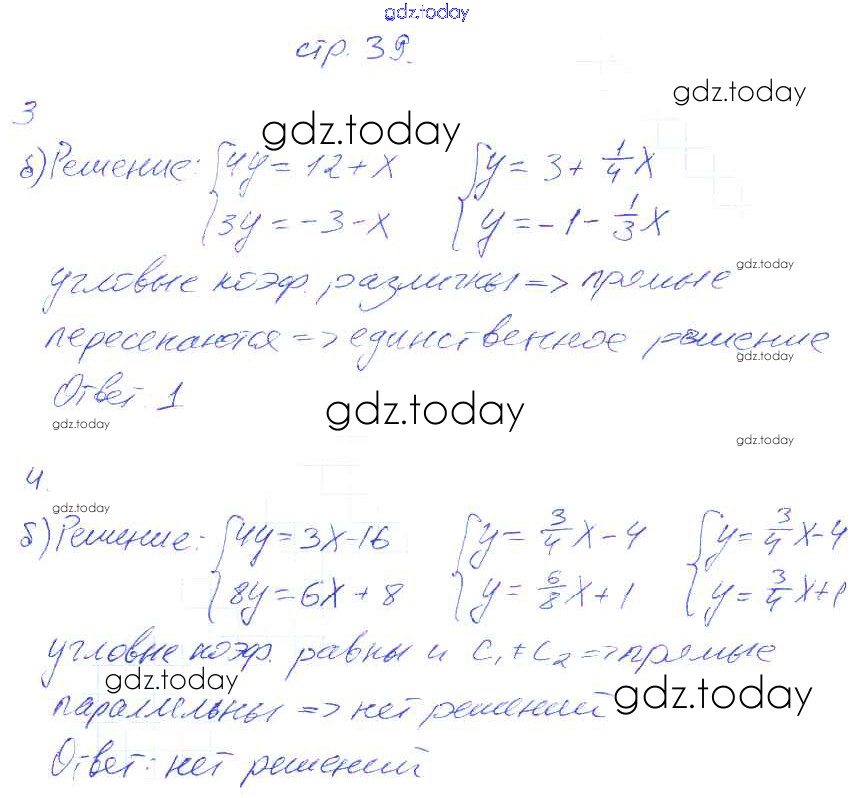 gdz.today
стр. 39.
gdz.today
3
gdz.today
б) Решение: {4y = 12 + x {y = 3 + 1/4 x
{3y = -3 - x {y = -1 - 1/3 x
gdz.today
угловые коэф. различны => прямые
пересекаются => единственное решение
gdz.today
Ответ: 1
gdz.today
gdz.today
gdz.today
4.
gdz.today
б) Решение: {4y = 3x - 16 {y = 3/4 x - 4 {y = 3/4 x - 4
{8y = 6x + 8 {y = 6/8 x + 1 {y = 3/4 x + 1
угловые коэф. равны и c₁ ≠ c₂ => прямые
gdz.today
gdz.today
параллельны => нет решений
Ответ: нет решений